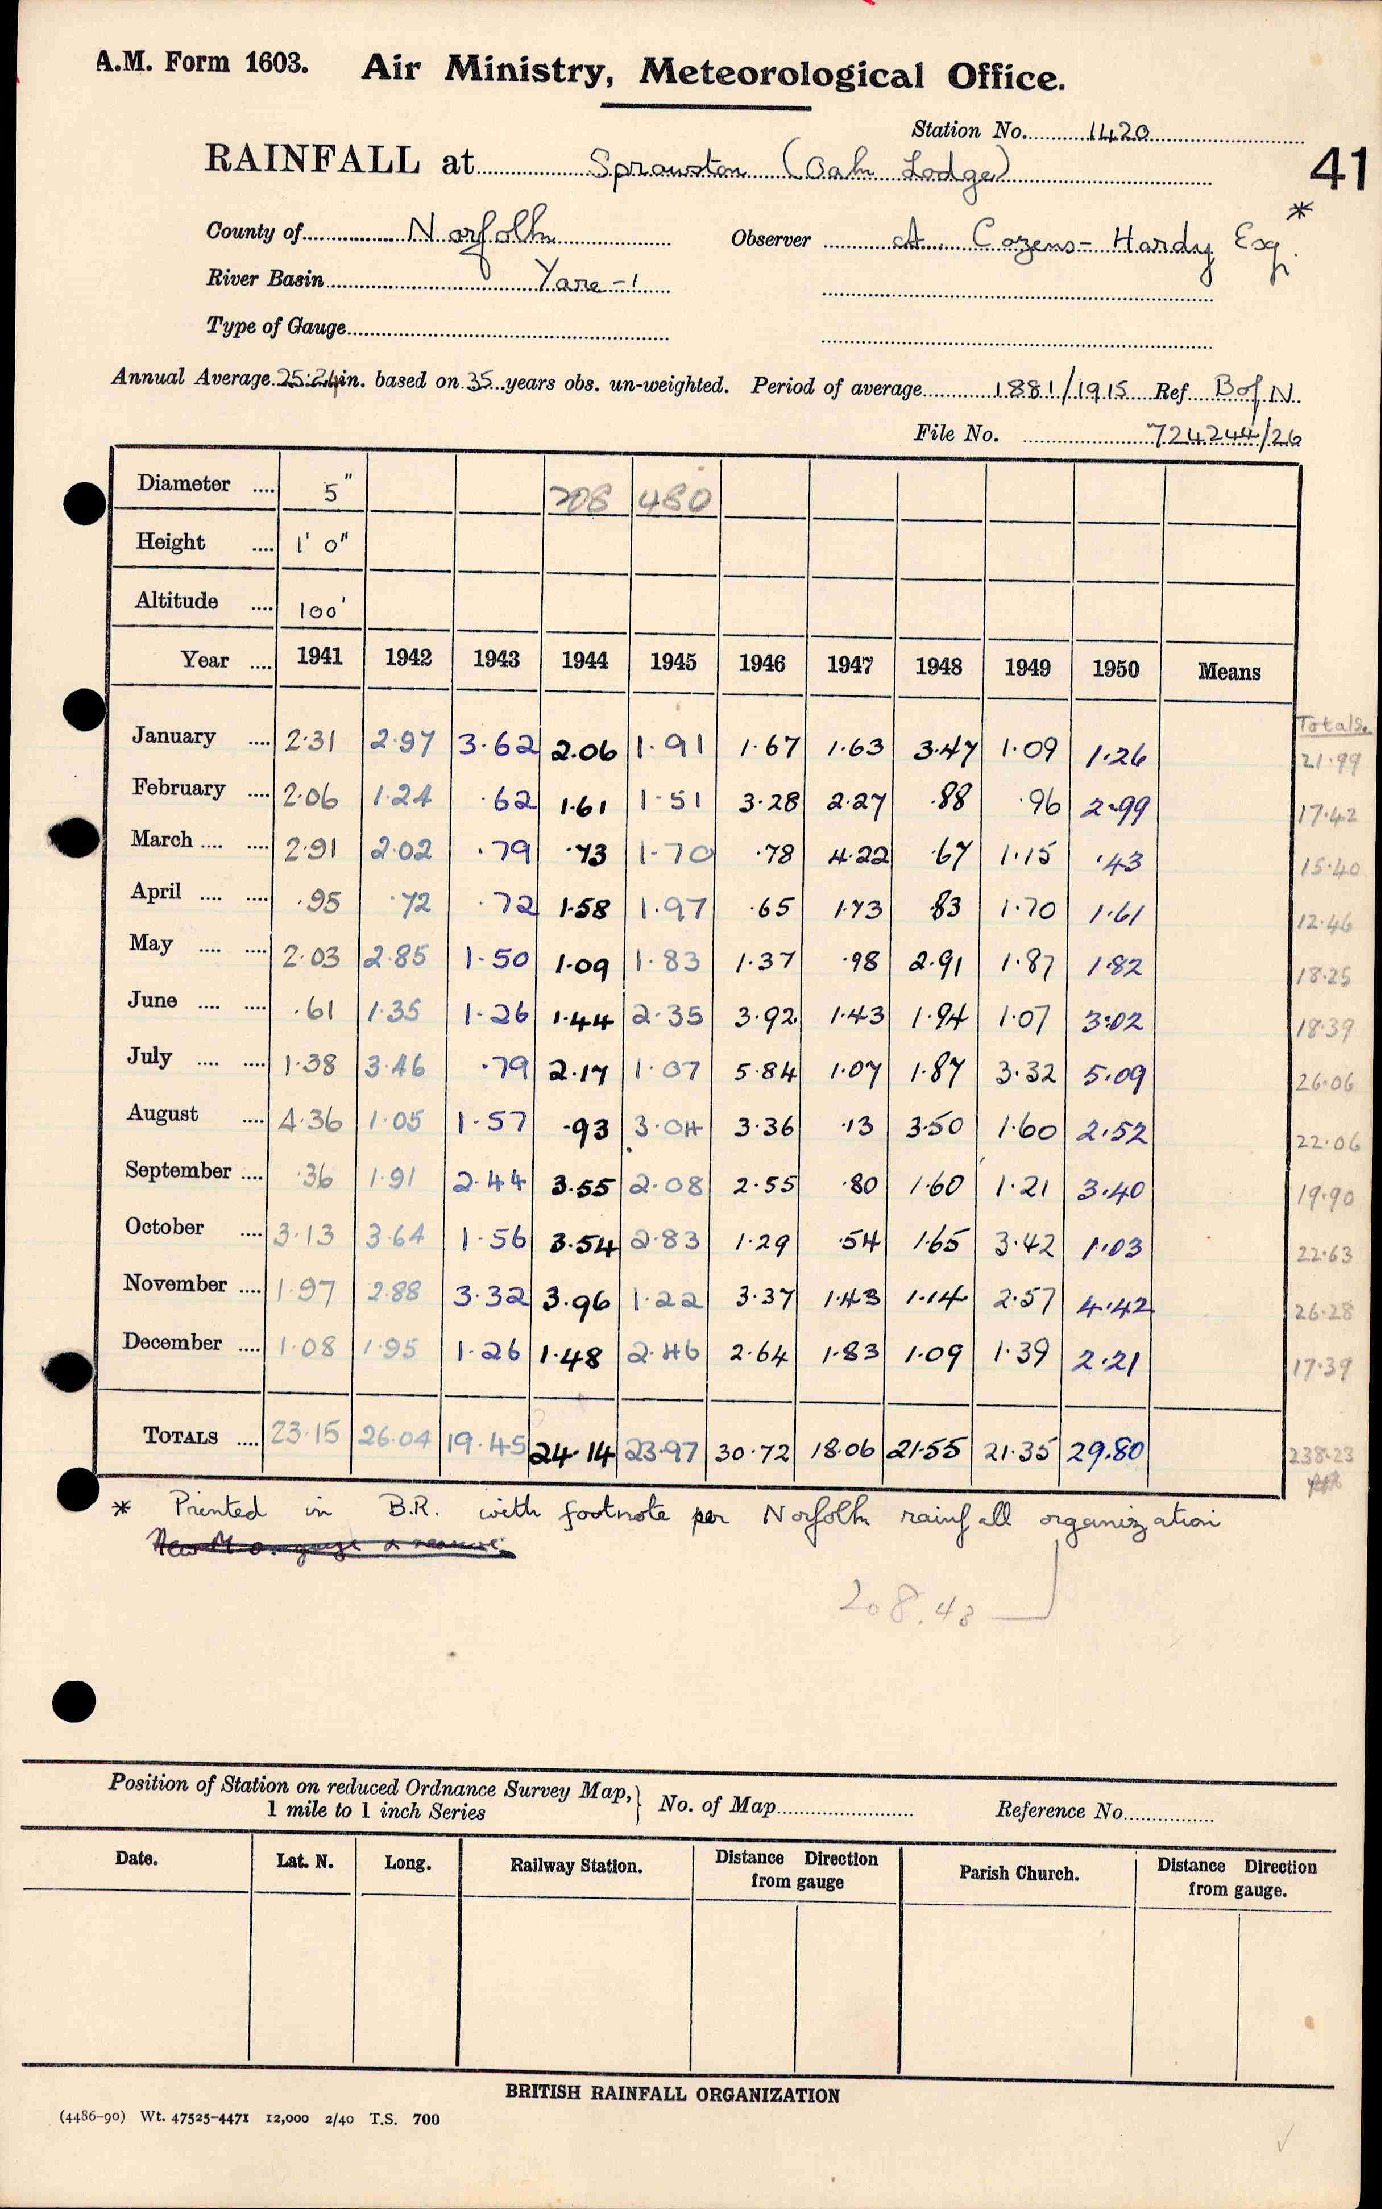 A.M. Form 1603. Air Ministry, Meteorological Office.
Station No. 1420
RAINFALL at Sprowston (Oak Lodge)
41
County of Norfolk Observer A. Cozens-Hardy Esq. *
River Basin Yare-1
Type of Gauge
Annual Average 25.24 in. based on 35 years obs. un-weighted. Period of average 1881/1915 Ref B of N.
File No. 724244/26
Diameter .... 5" 208 480
Height .... 1' 0"
Altitude .... 100'
Year .... 1941 1942 1943 1944 1945 1946 1947 1948 1949 1950 Means
Totals.
January .... 2.31 2.97 3.62 2.06 1.91 1.67 1.63 3.47 1.09 1.26 21.99
February .... 2.06 1.24 .62 1.61 1.51 3.28 2.27 .88 .96 2.99 17.42
March .... .... 2.91 2.02 .79 .73 1.70 .78 4.22 .67 1.15 .43 15.40
April .... .... .95 .72 .72 1.58 1.97 .65 1.73 .83 1.70 1.61 12.46
May .... .... 2.03 2.85 1.50 1.09 1.83 1.37 .98 2.91 1.87 1.82 18.25
June .... .... .61 1.35 1.26 1.44 2.35 3.92 1.43 1.94 1.07 3.02 18.39
July .... .... 1.38 3.46 .79 2.17 1.07 5.84 1.07 1.87 3.32 5.09 26.06
August .... 4.36 1.05 1.57 .93 3.04 3.36 .13 3.50 1.60 2.52 22.06
September .... .36 1.91 2.44 3.55 2.08 2.55 .80 1.60 1.21 3.40 19.90
October .... 3.13 3.64 1.56 3.54 2.83 1.29 .54 1.65 3.42 1.03 22.63
November .... 1.97 2.88 3.32 3.96 1.22 3.37 1.43 1.14 2.57 4.42 26.28
December .... 1.08 1.95 1.26 1.48 2.46 2.64 1.83 1.09 1.39 2.21 17.39
TOTALS .... 23.15 26.04 19.45 24.14 23.97 30.72 18.06 21.55 21.35 29.80 238.23
* Printed in B.R. with footnote per Norfolk rainfall organization
208.43
Position of Station on reduced Ordnance Survey Map,} No. of Map Reference No.
1 mile to 1 inch Series
Date. Lat. N. Long. Railway Station. Distance Direction from gauge Parish Church. Distance Direction from gauge.
BRITISH RAINFALL ORGANIZATION
(4486-90) Wt. 47525-4471 12,000 2/40 T.S. 700